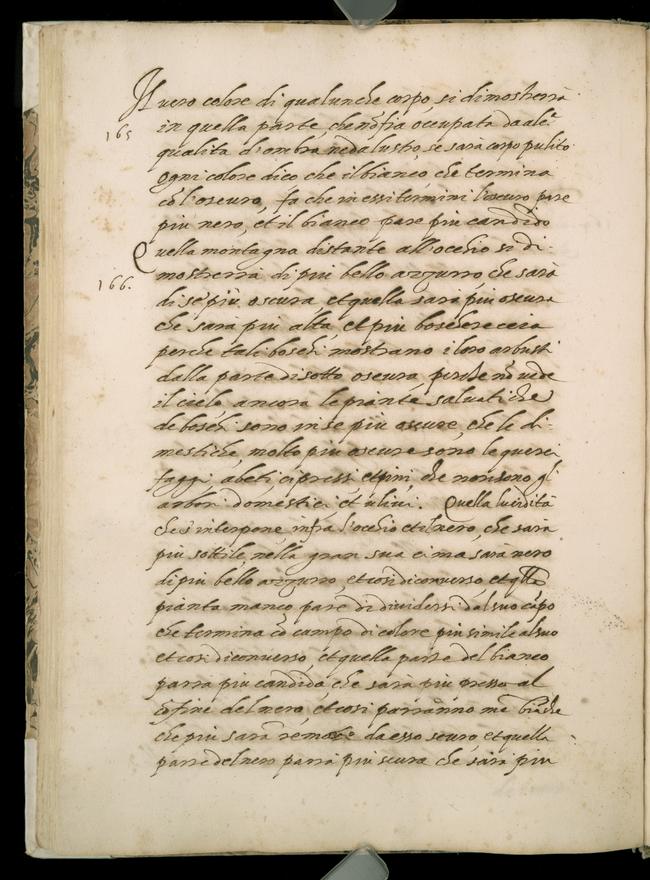 Il uero colore di qualunche corpo, si dimosterrà
165
in quella parte, che nõ sia occupata da alc.ª
qualita d'ombra, ne da lustro, se sarà corpo pulito
Ogni colore dico che il bianco, che termina
cõ l'oscuro, fa che in essi termini l'oscuro pare
piu nero, et il bianco pare piu candido
Quella montagna distante all'occhio si di:
166.
mosterrà di piu bello azzurro, che sarà
di se piu oscura, et quella sarà piu oscura
che sarà piu alta, et piu boschereccia
perche tali boschi mostrano i loro arbusti
dalla parte di sotto oscura perche nõ uede
il cielo ancora le piante saluatiche
de boschi sono in se piu oscure, che le di:
mestiche, molto piu oscure sono le querci
faggi, abeti cipressi et pini che non sono gl'
arbori domestici et uliui. Quella luciditã
che s'interpone infra l'occhio et il nero, che sarà
piu sottile, nella gran sua cima, sara nero
di piu bello azzurro, et cosi diconuerso, et q̃lla
pianta manco pare di diuidersi dal suo cãpo
che termina cõ campo di colore piu simile al suo
et cosi diconuerso, et quella parte del bianco
parra piu candida che sarà piu presso al
cõfine del nero, et cosi parranno mẽ biãche
che piu sarà remote da esso scuro, et quella
parte del nero parrà piu scura che sarà piu